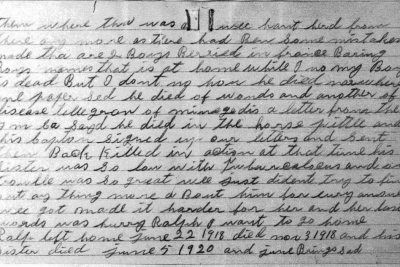 them where that was well hant bird from
there any more as tiere had Ben Some mistakes
made tha are 2 Boys Berried in france Baring
Boys names that is at home while I no my Boy
is dead But I dont no how he died now her
one paper Sed he died of wonds and another of
disease telegrom of mine a letter from the
Sayd he died in the horse pittle and
his Captan Signed up our letters and Sent
them Back Killed in action at that time his
Sister was So low with Tuburcalosens and our
trouble was So great well just dident try to find
out any thing more a Bout him for every ansure
we got made it harder for her and her last
words was hurry Ralph I want to go home
Ralf left home June 22 1918 died nov 9 1918 and his
Sister died June 5 1920 and June Brings Sad